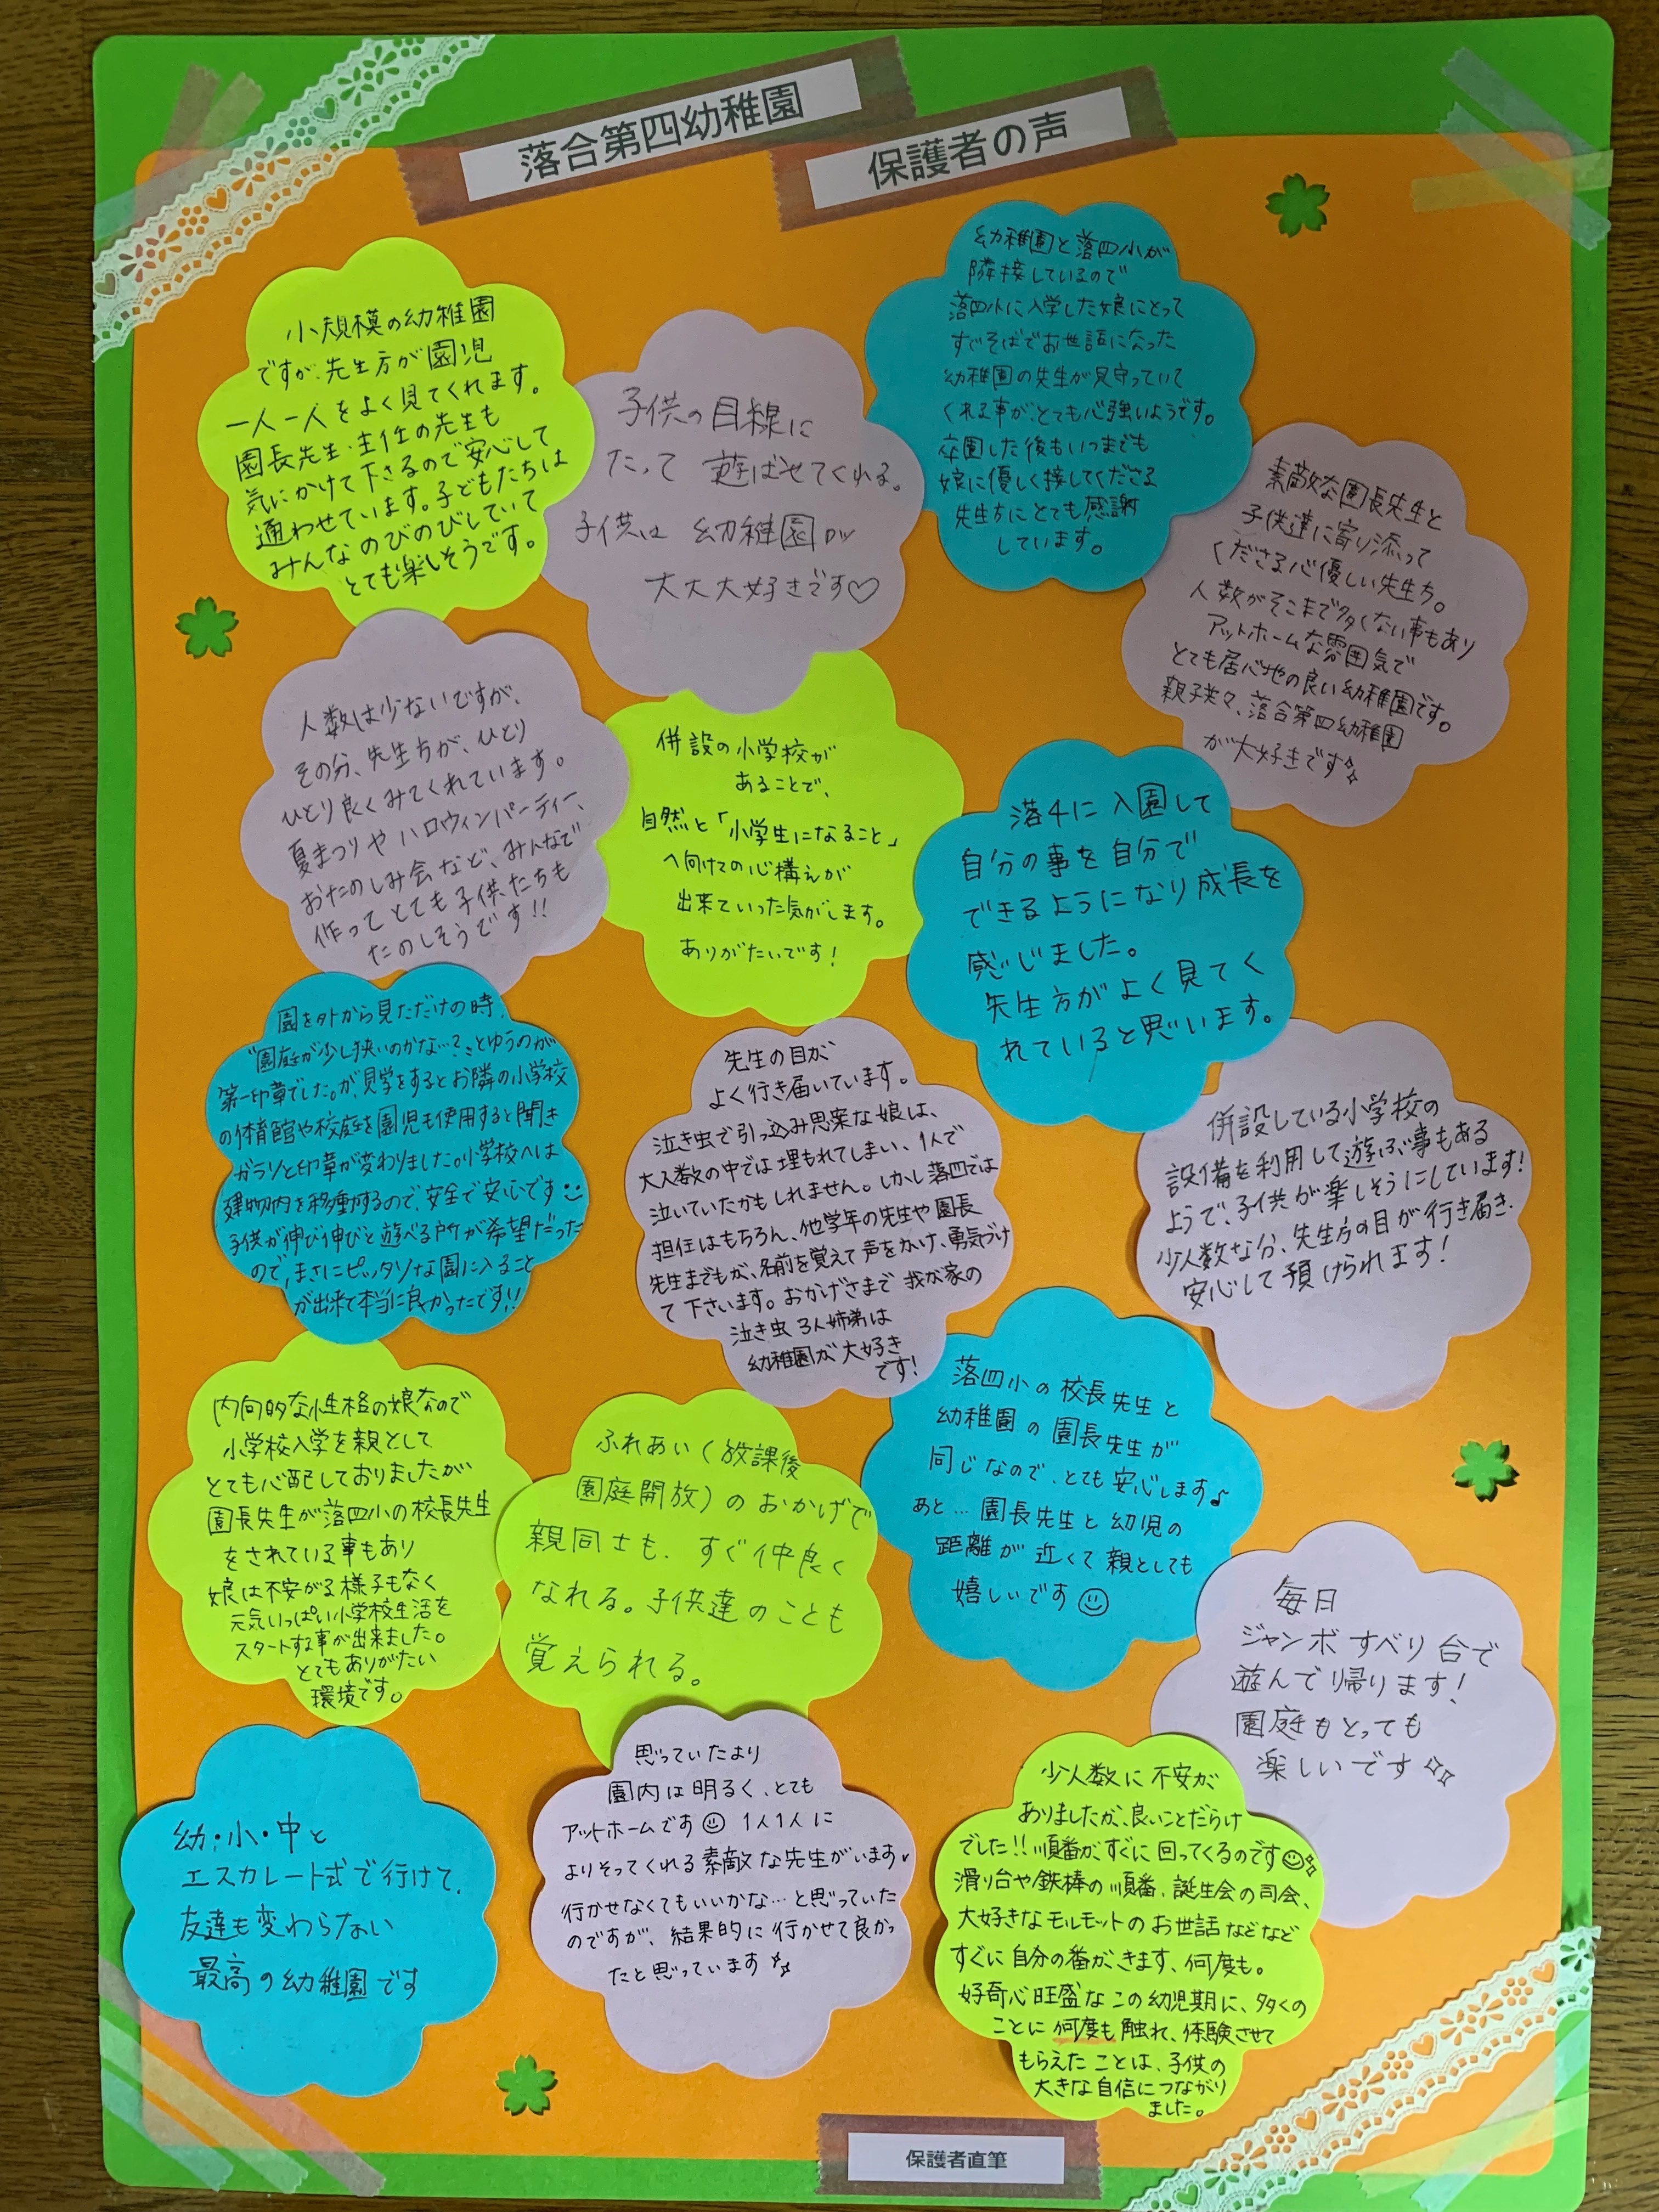 落合第四幼稚園
保護者の声
小規模の幼稚園
ですが、先生方が園児
一人一人をよく見てくれます。
園長先生・主任の先生も
気にかけて下さるので安心して
通わせています。子どもたちは
みんなのびのびしていて
とても楽しそうです。
子供の目線に
たって遊ばせてくれる。
子供は幼稚園が
大大大好きです♡
幼稚園と落四小が
隣接しているので
落四小に入学した娘にとって
すぐそばでお世話になった
幼稚園の先生が見守っていて
くれる事が、とても心強いようです。
卒園した後もいつまでも
娘に優しく接してくださる
先生方にとても感謝
しています。
素敵な園長先生と
子供達に寄り添って
くださる心優しい先生方。
人数がそこまで多くない事もあり
アットホームな雰囲気で
とても居心地の良い幼稚園です。
親子共々、落合第四幼稚園
が大好きです
人数は少ないですが、
その分、先生方が、ひとり
ひとり良くみてくれています。
夏まつりやハロウィンパーティー、
おたのしみ会など、みんなで
作ってとても子供たちも
たのしそうです!!
併設の小学校が
あることで、
自然と「小学生になること」
へ向けての心構えが
出来ていった気がします。
ありがたいです!
落4に入園して
自分の事を自分で
できるようになり成長を
感じました。
先生方がよく見てく
れていると思います。
園を外から見ただけの時、
"園庭が少し狭いのかな…?"とゆうのが
第一印章でした。が、見学をするとお隣の小学校
の体育館や校庭を園児も使用すると聞き
ガラリと印章が変わりました。小学校へは
建物内を移動するので、安全で安心です
子供が伸び伸びと遊べる所が希望だった
ので、まさにピッタリな園に入ること
が出来て本当に良かったです!!
先生の目が
よく行き届いています。
泣き虫で引っ込み思案な娘は、
大人数の中では埋もれてしまい、1人で
泣いていたかもしれません。しかし落四では
担任はもちろん、他学年の先生や園長
先生までもが、名前を覚えて声をかけ、勇気づけ
て下さいます。おかげさまで我が家の
泣き虫3人姉弟は
幼稚園が大好き
です!
併設している小学校の
設備を利用して遊ぶ事もある
ようで、子供が楽しそうにしています!
少人数な分、先生方の目が行き届き、
安心して預けられます!
内向的な性格の娘なので
小学校入学を親として
とても心配しておりましたが
園長先生が落四小の校長先生
をされている事もあり
娘は不安がる様子もなく
元気いっぱい小学校生活を
スタートする事が出来ました。
とてもありがたい
環境です。
ふれあい(放課後
園庭開放)のおかげで
親同士も、すぐ仲良く
なれる。子供達のことも
覚えられる。
落四小の校長先生と
幼稚園の園長先生が
同じなので、とても安心します♪
あと…園長先生と幼児の
距離が近くて親としても
嬉しいです☺
毎日
ジャンボすべり台で
遊んで帰ります!
園庭もとっても
楽しいです
幼・小・中と
エスカレート式で行けて、
友達も変わらない
最高の幼稚園です
思っていたより
園内は明るく、とても
アットホームです☺ 1人1人に
よりそってくれる素敵な先生がいます
行かせなくてもいいかな…と思っていた
のですが、結果的に行かせて良かっ
たと思っています
少人数に不安が
ありましたが、良いことだらけ
でした!!順番がすぐに回ってくるのです☺
滑り台や鉄棒の順番、誕生会の司会、
大好きなモルモットのお世話などなど
すぐに自分の番がきます、何度も。
好奇心旺盛なこの幼児期に、多くの
ことに何度も触れ、体験させて
もらえたことは、子供の
大きな自信につながり
ました。
保護者直筆